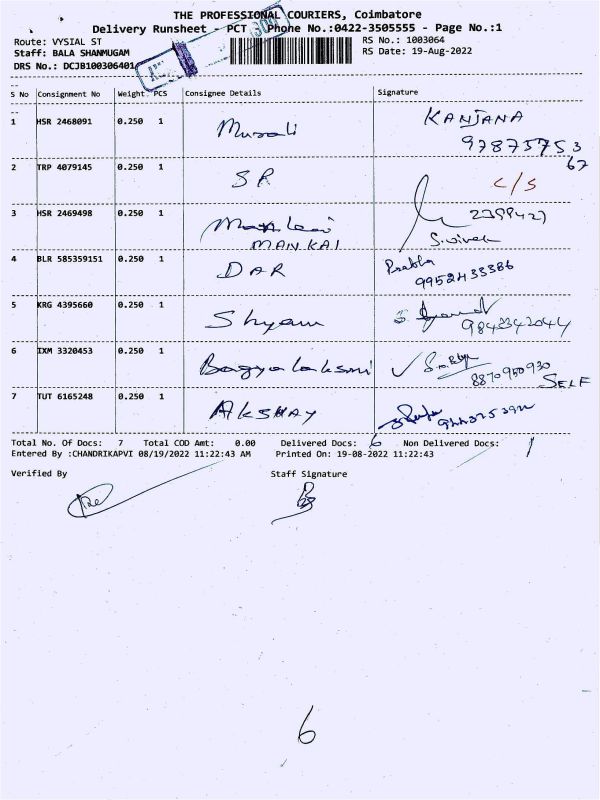 THE PROFESSIONAL COURIERS, Coimbatore
Delivery Runsheet - PCT Phone No.:0422-3505555 - Page No.:1
Route: VYSIAL ST
RS No.: 1003064
Staff: BALA SHANMUGAM
RS Date: 19-Aug-2022
DRS No.: DCJB100306401
S No Consignment No Weight PCS Consignee Details Signature
1 HSR 2468091 0.250 1 Murali KANJANA
97875753
67
2 TRP 4079145 0.250 1 SR C/S
3 HSR 2469498 0.250 1
MANKAI S.vivek
4 BLR 585359151 0.250 1 DAR Prabha
9952433386
5 KRG 4395660 0.250 1 Shyam
9843342044
6 IXM 3320453 0.250 1 Bagyalaksmi
8870950930
SELF
7 TUT 6165248 0.250 1 AKSHAY
Total No. Of Docs: 7 Total COD Amt: 0.00 Delivered Docs: 6 Non Delivered Docs: 1
Entered By :CHANDRIKAPVI 08/19/2022 11:22:43 AM Printed On: 19-08-2022 11:22:43
Verified By Staff Signature
6